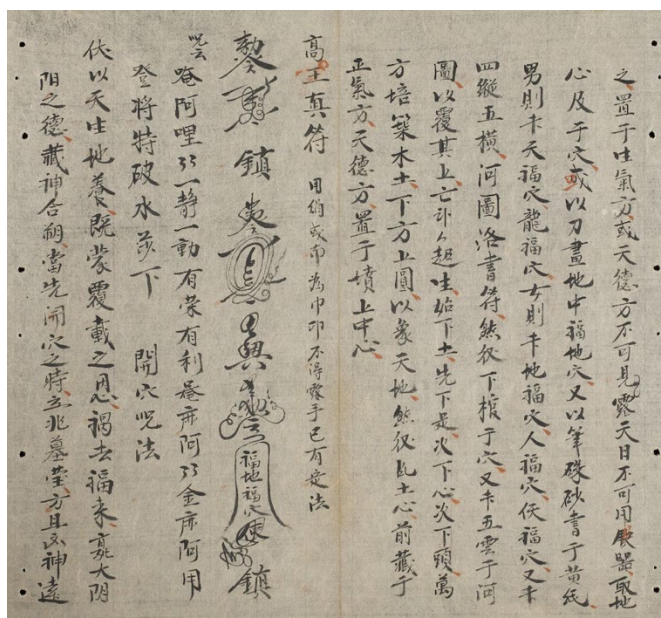 之置于生氣方或天德方不可見露天日不可用鉄器取地
心及于穴或以刀畫地中福地穴又以筆硃砂書于黄紙
男則卞天福穴龍福穴女則卞地福穴人福穴伏福穴又卞
四縱五橫河圖洛書符然後下棺于穴又卞五雲于河
圖以覆其上亡卦介起生始下土先下足次下心次下頭萬
方培築木土下方上圓以象天地然後瓦土心前藏于
正氣方天德方置于墳上中心
高王真符 用絹或布為巾卬不得露手已有定法
鎮 福地福穴 鎮
咒云 唵阿哩哩一静一動有荣有利唵床阿哩金床阿用
登将特破水莎下 開穴咒法
伏以天生地養既蒙覆載之恩禍去福来嘉大阴
阳之德藏神合朔當先開穴之時立兆墓塋方且凶神遠